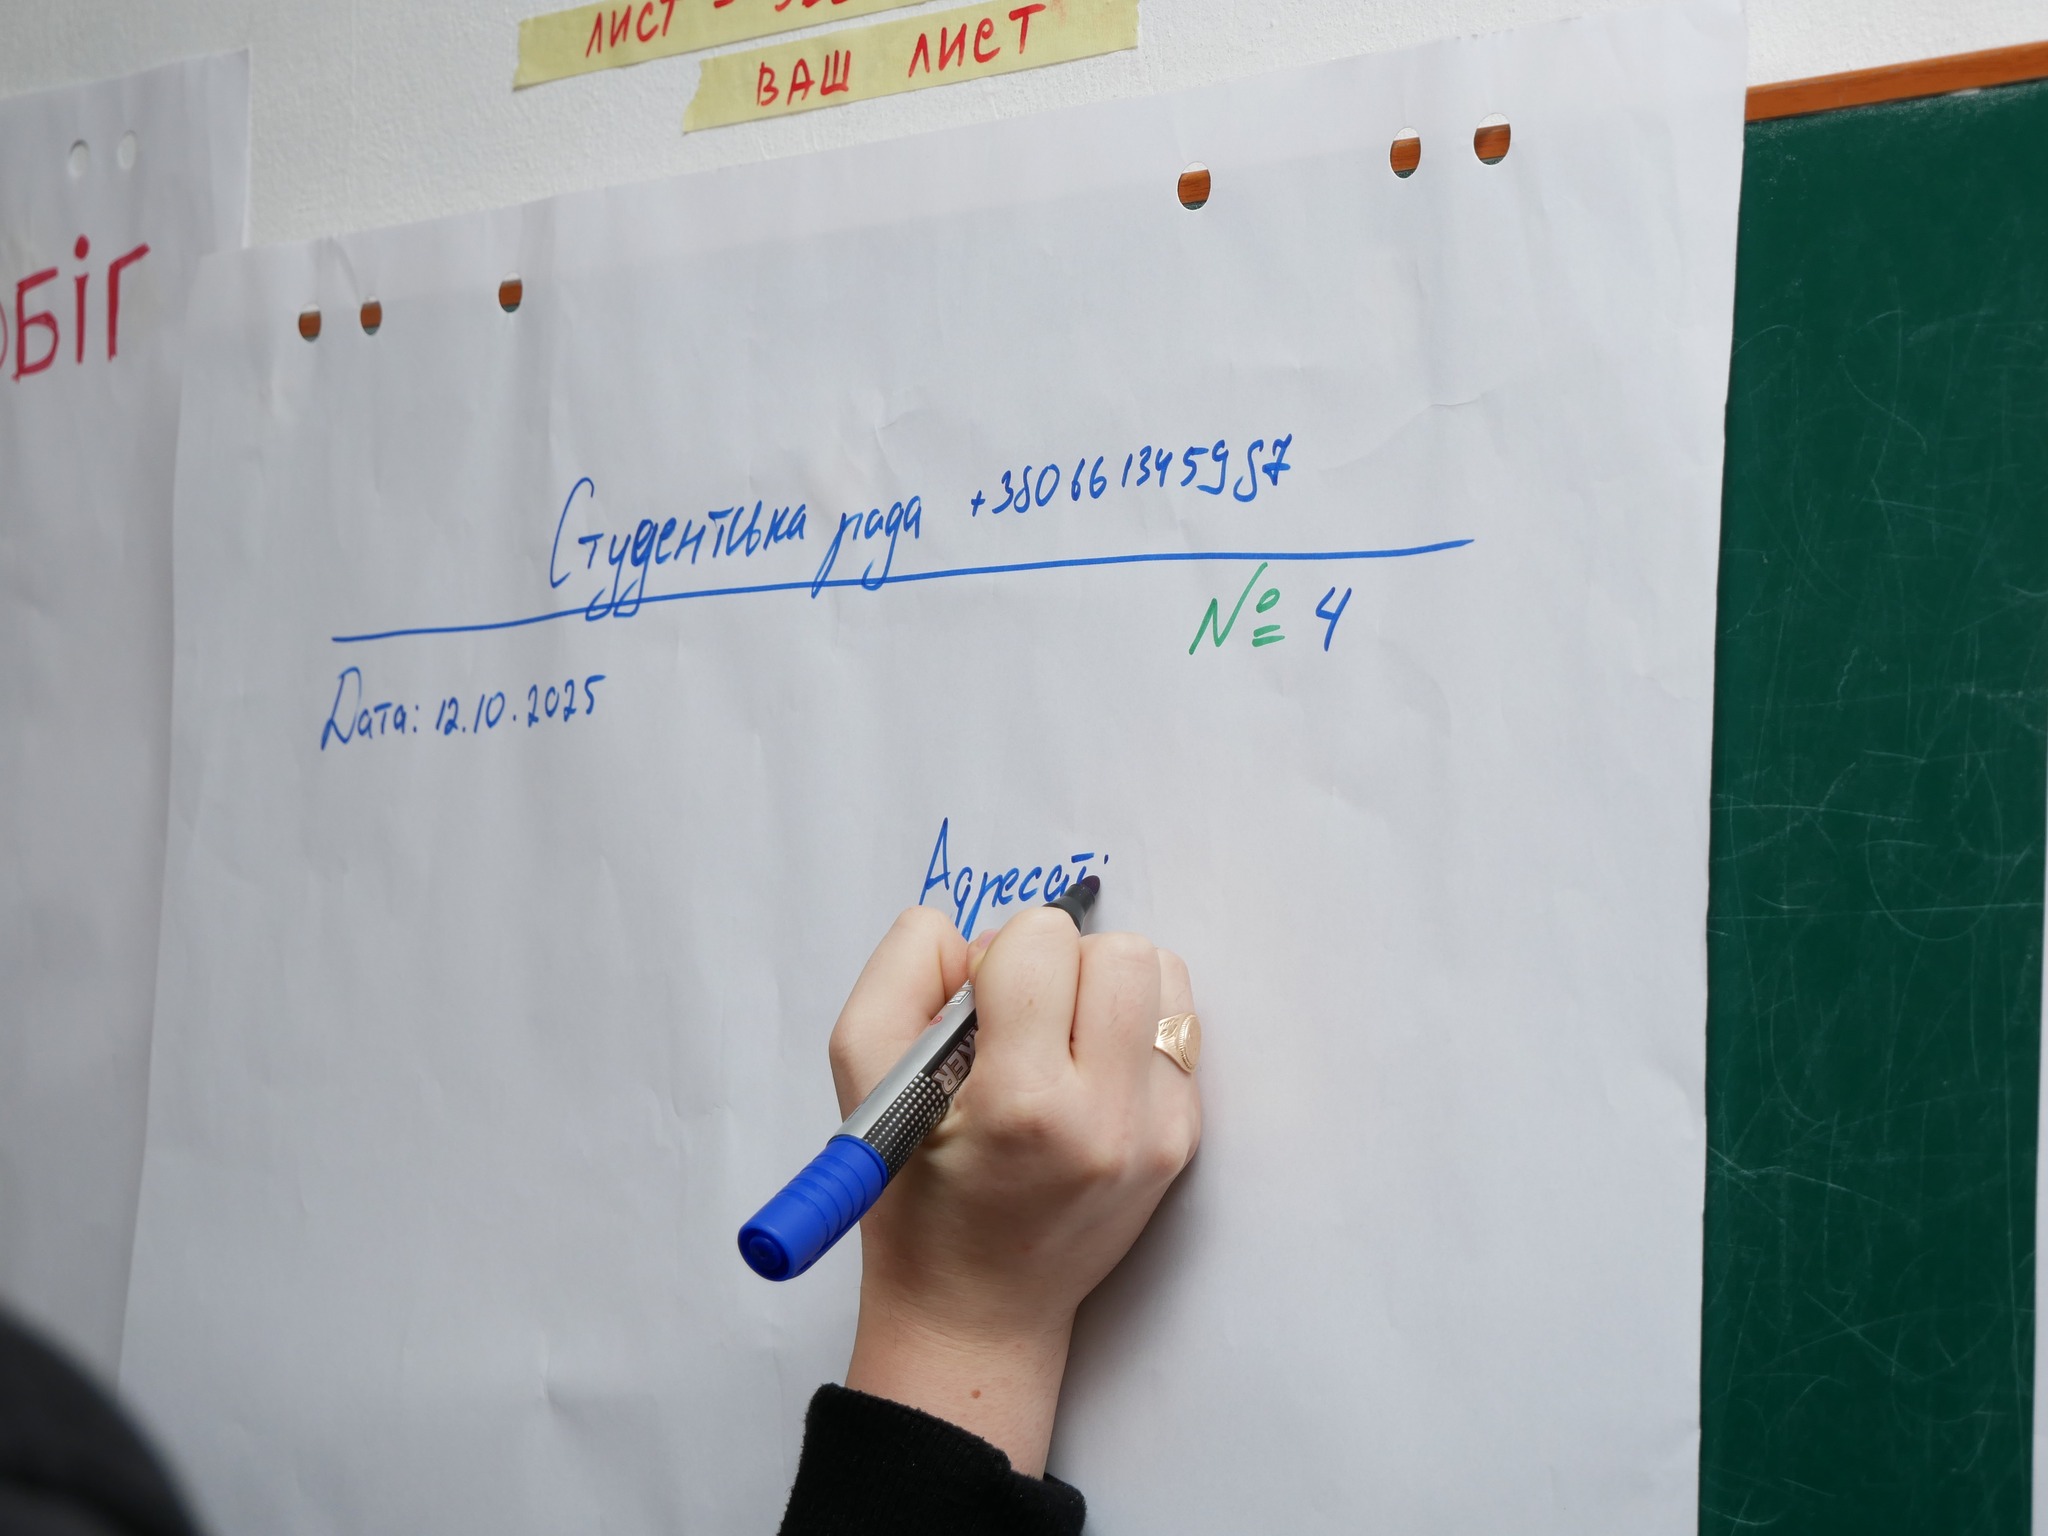 ВАШ ЛИСТ
ЛИСТ -
ОБІГ
Студентська рада +380661345987
№ 4
Дата: 12.10.2025
Адресат: